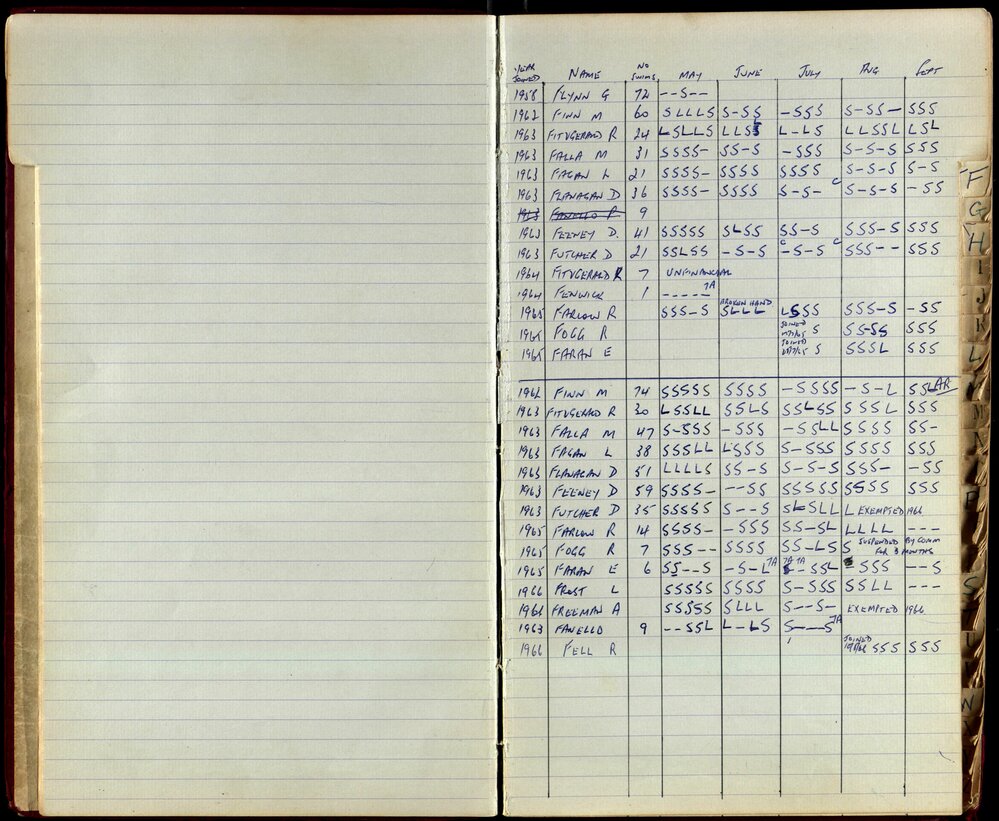 YEAR JOINED NAME NO SWIMS MAY JUNE JULY AUG SEPT
1958 FLYNN G 72 --S--
1962 FINN M 60 SLLLS S-SS -SSS S-SS- SSS
1963 FITZGERALD R 24 LSLLS LLSS L-LS LLSSL LSL
1963 FALLA M 31 SSSS- SS-S -SSS S-S-S SSS
1963 FAGAN L 21 SSSS- SSSS SSSS S-S-S S-S
1963 FLANAGAN D 36 SSSS- SSSS S-S- C S-S-S -SS
1963 FANELLO R 9
1963 FEENEY D. 41 SSSSS SLSS SS-S SSS-S SSS
1963 FUTCHER D 21 SSLSS -S-S C -S-S C SSS-- SSS
1964 FITZGERALD R 7 UNFINANCIAL
1964 FENWICK 1 ----- TA
1965 FARLOW R SSS-S BROKEN HAND SLLL LSSS SSS-S -SS
1965 FOGG R JOINED S SS-SS SSS
1965 FARAN E JOINED S SSSL SSS
1962 FINN M 74 SSSSS SSSS -SSSS -S-L SSL AR
1963 FITZGERALD R 30 LSSLL SSLS SSLSS SSSL SSS
1963 FALLA M 47 S-SSS -SSS -SSLL SSSS SS-
1963 FAGAN L 38 SSSLL LSSS S-SSS SSSS SSS
1963 FLANAGAN D 51 LLLLS SS-S S-S-S SSS- -SS
1963 FEENEY D 59 SSSS- --SS SSSSS SSSS SSS
1963 FUTCHER D 35 SSSSS S--S SLSLL L EXEMPTED 1966
1965 FARLOW R 14 SSSS- -SSS SS-SL LLLL ---
1965 FOGG R 7 SSS-- SSSS SS-LS S SUSPENDED BY COMM FOR 3 MONTHS
1965 FARAN E 6 SS--S -S-L TA TA TA -SSL -SSS --S
1966 FROST L SSSSS SSSS S-SSS SSLL ---
1966 FREEMAN A SSSSS SLLL S--S- EXEMPTED 1966
1963 FANELLO 9 --SSL L--LS S---S TA
1966 FELL R JOINED SSS SSS
F
G
H
I
J
K
L
M
N
P
S
U
W